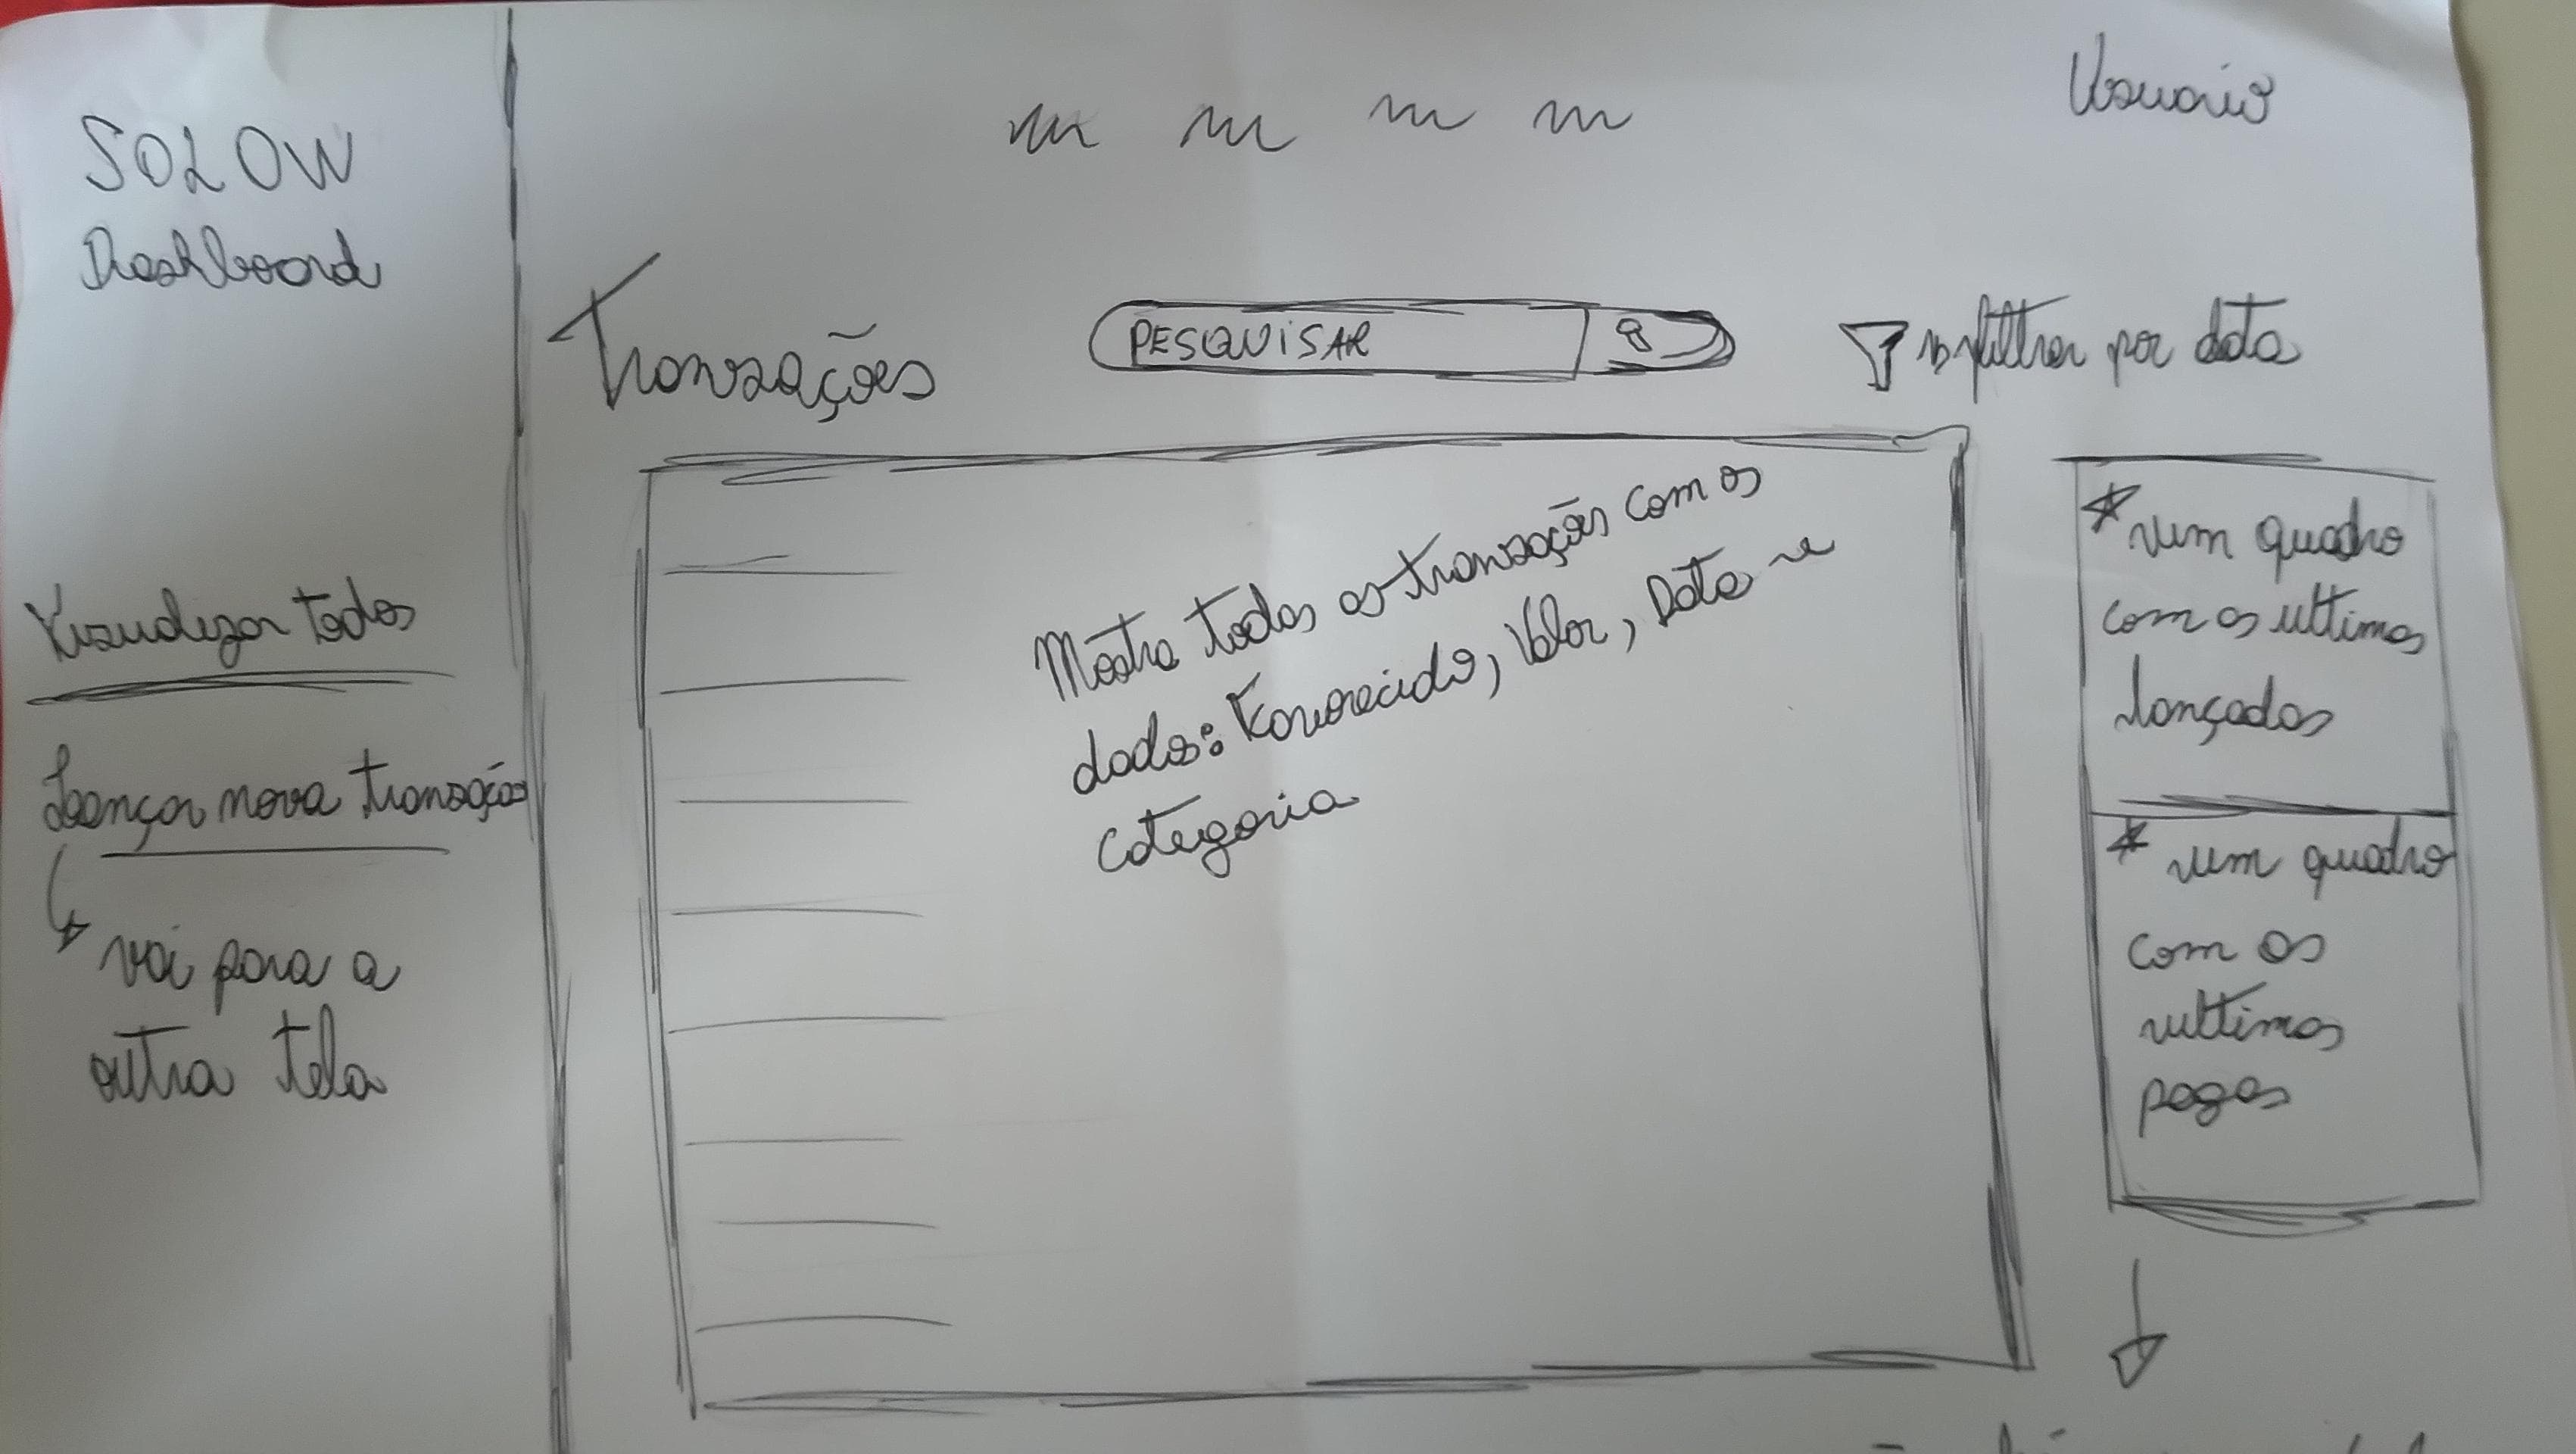 SOLOW
Dashboard
Visualizar todos
Lançar nova transação
vai para a
outra tela
Usuario
Transações
PESQUISAR
filtrar por data
Mostra todas as transações com os
dados: Favorecido, Valor, Data e
categoria
* um quadro
com os ultimos
lançados
* um quadro
com os
ultimos
pagos